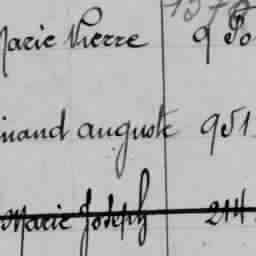 Marie Pierre 950
inand auguste 951
Marie Joseph 244